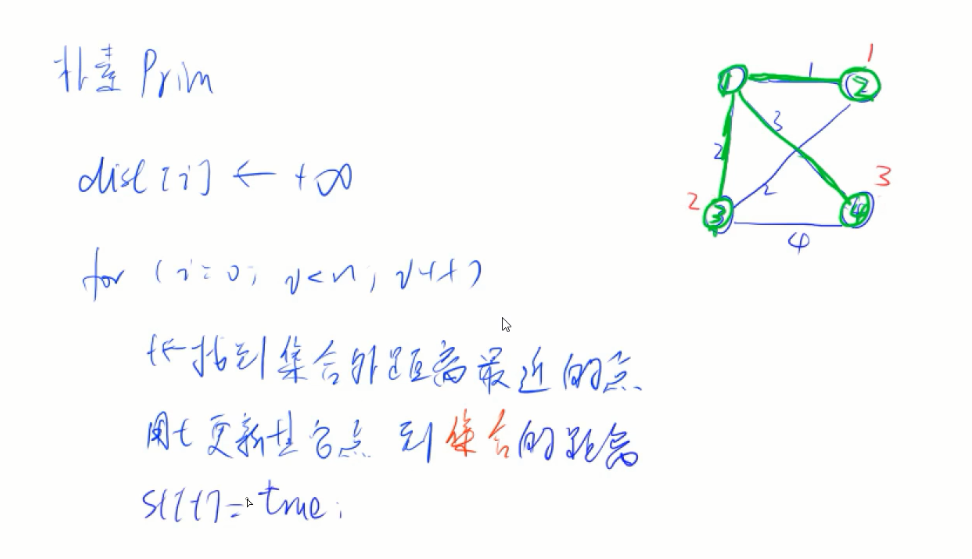 朴素 Prim
dist[i] ← +∞
for (i=0; i<n; i++)
t←找到集合外距离最近的点
用t更新其它点 到集合的距离
st[t]=true;
1
1
1
2
2
3
2
2
3
3
4
4